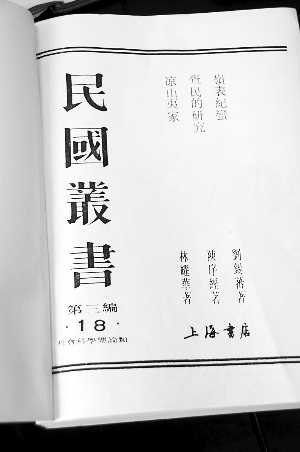 嶺表紀蠻
疍民的研究
凉山夷家
劉錫蕃著
陳序經著
林耀華著
民國叢書
第三編
·18·
社會科學總論類
上海書店